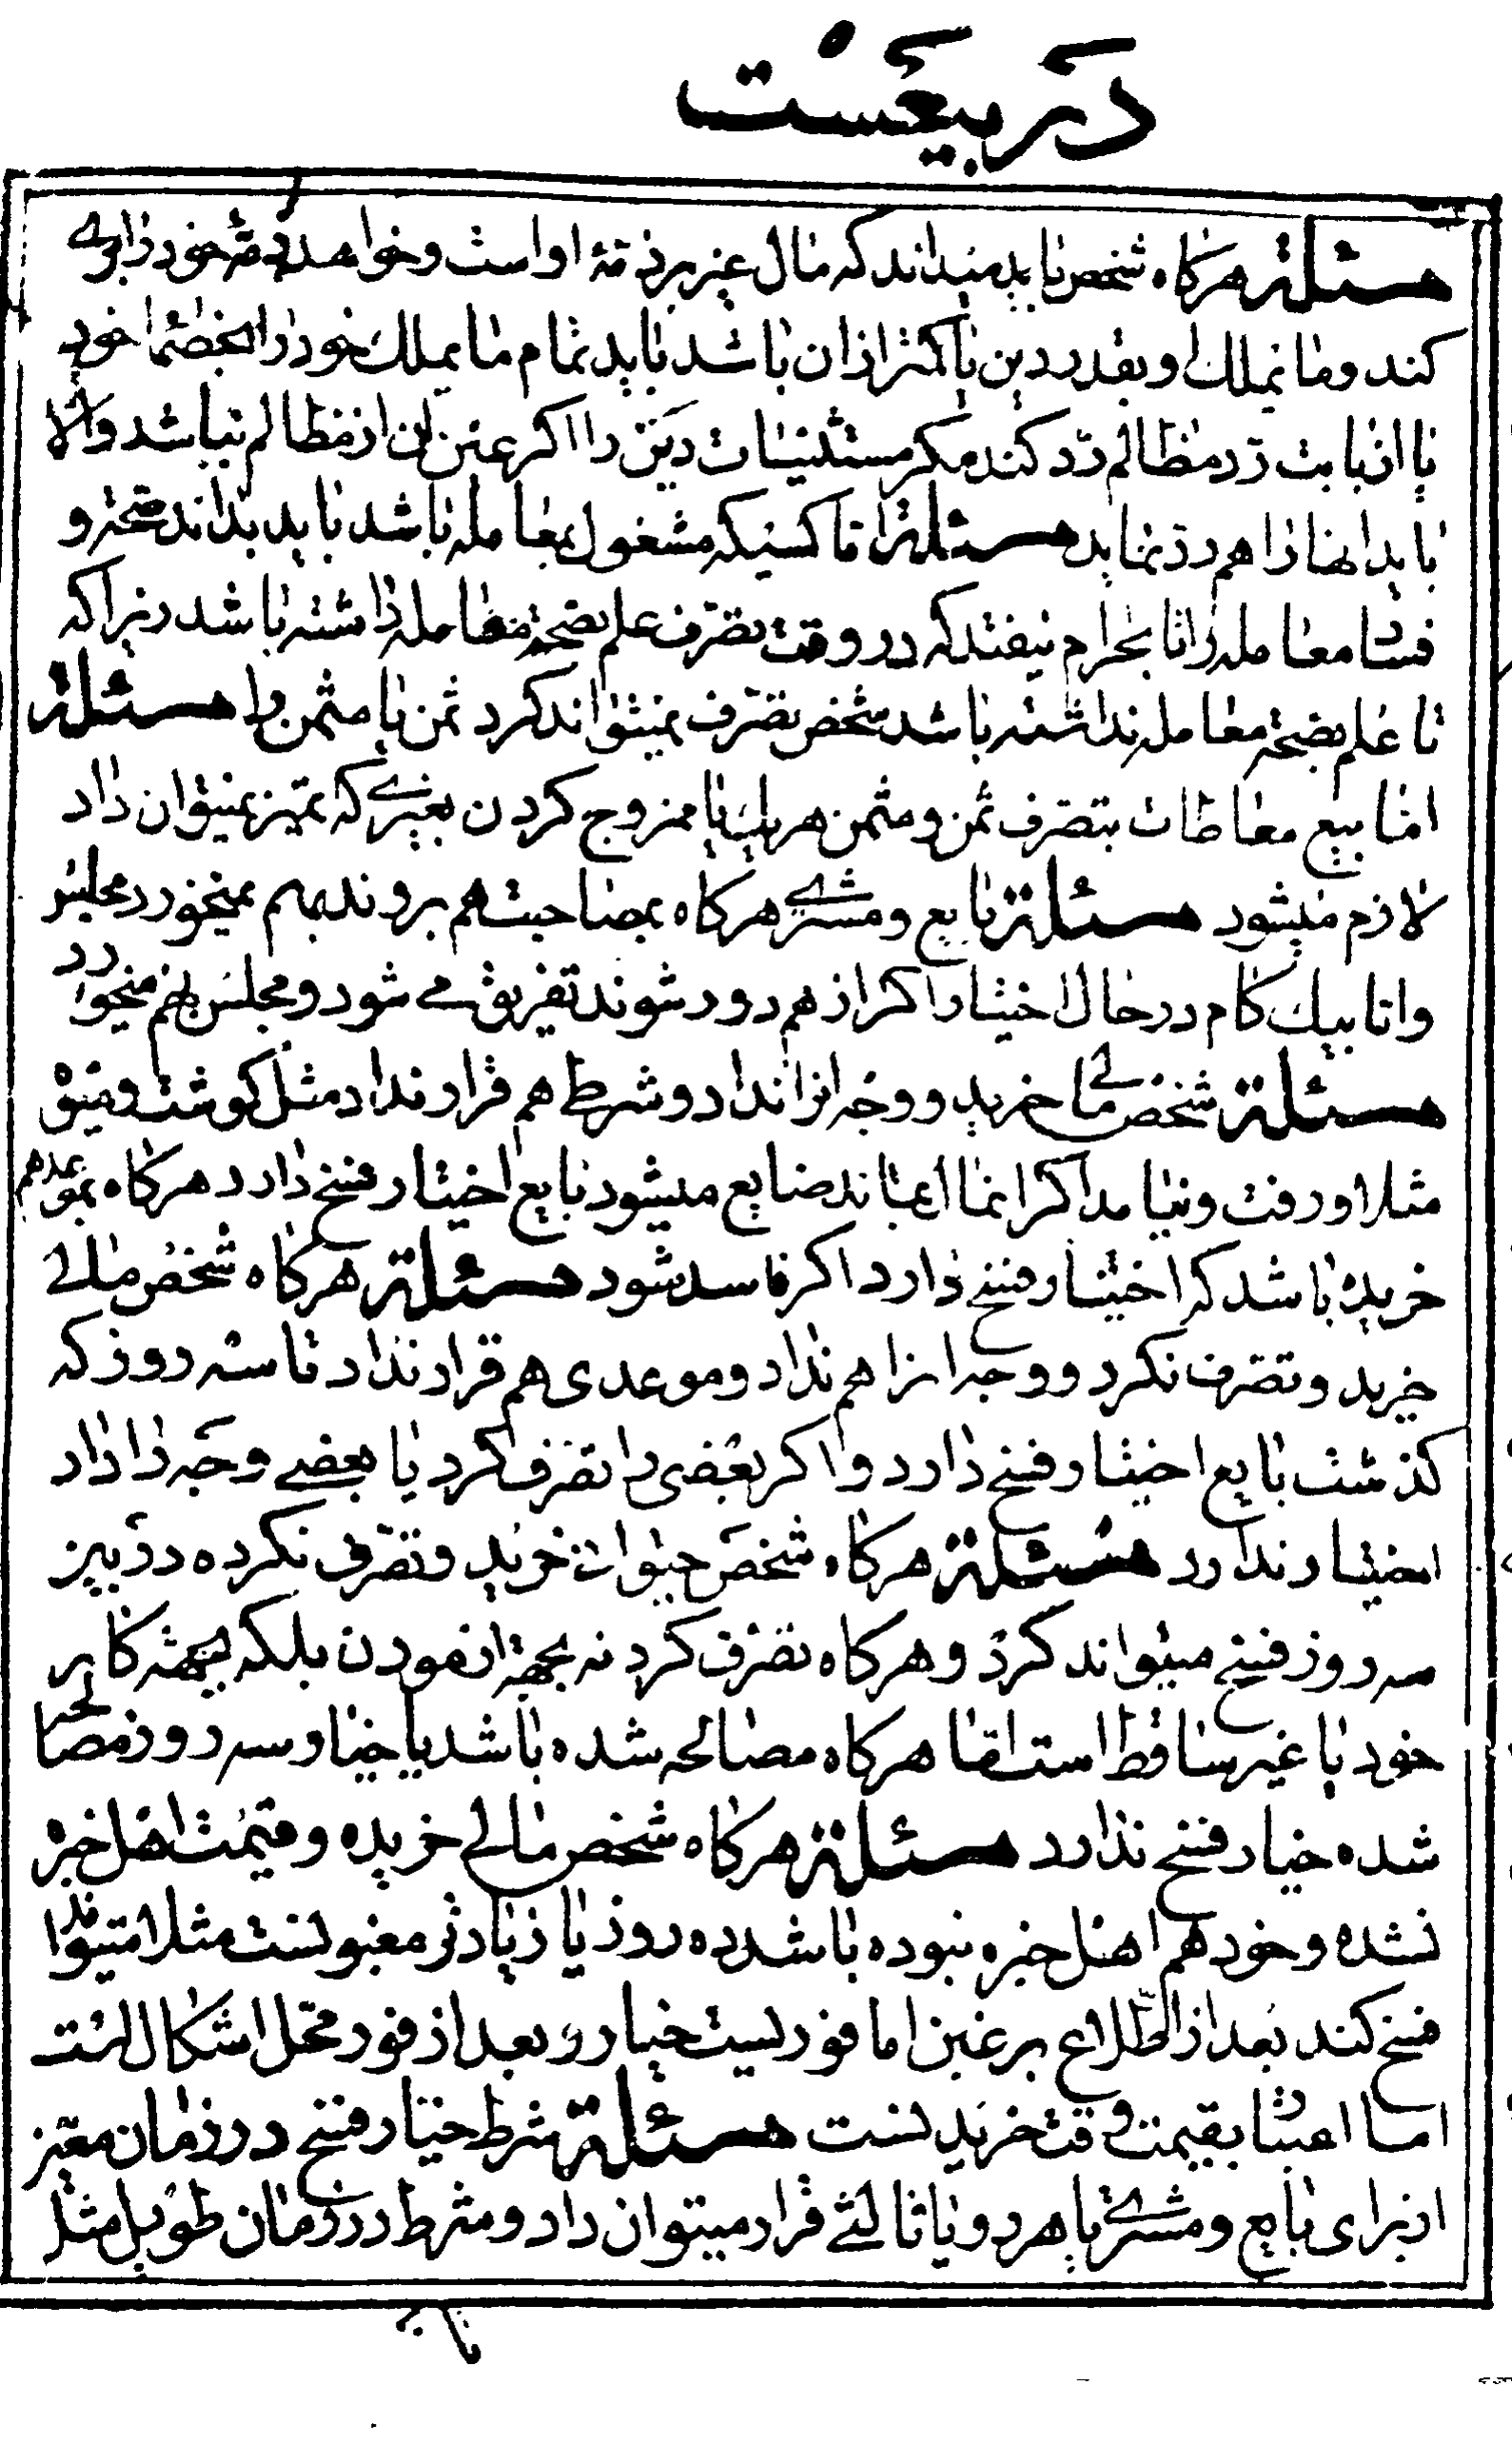 در بیعست
مسئلة هرکاه شخص باید میداند که مال غیر بر ذمّهٔ او است و خواهد ذمّهٔ خود را بری
کند و ما یملك او بقدر دین یا کمتر از ان باشد باید تمام ما یملك خود را بخصماء خود
یا از بابت ردّ مظالم ردّ کند مکر مستثنیات دین را اکر عین ان از مظالم نباشد والّا
باید انها را هم ردّ نماید مسئلة امّا کسیکه مشغول بمعامله باشد باید بداند صحّة و
فساد معامله را تا بحرام نیفتد که در وقت تصرّف علم بصحّة معامله داشته باشد زیرا که
تا علم بصحّة معامله نداشته باشد شخص تصرّف نمیتواند کرد ثمن یا مثمن را مسئلة
امّا بیع معاطات بتصرّف ثمن و مثمن هریك یا ممزوج کردن بغیری که تمیز نمیتوان داد
لازم میشود مسئلة بایع و مشتری هرکاه بمصاحبت هم بروند بهم نمیخورد مجلس
و امّا بیك کام در حال اختیار اکر از هم دور شوند تفریق می شود و مجلس بهم میخورد
مسئلة شخص مالی خرید و وجه انرا نداد و شرط هم قرار نداد مثل کوشت و میوه
مثلا و رفت و نیامد اکر انها بماند ضایع میشود بایع اختیار فسخ دارد هرکاه بموعد هم
خریده باشد که اختیار فسخ دارد اکر فاسد شود مسئلة هرکاه شخص مالی
خرید و تصّرف نکرد و وجه انرا هم نداد و موعدی هم قرار نداد تا سه روز که
کذشت بایع اختیار فسخ دارد و اکر بعضی را تصرف کرد یا بعضی وجه را داد
اختیار ندارد مسئلة هرکاه شخص حیوان خرید و تصّرف نکرده در بین
سه روز فسخ میتواند کرد و هرکاه تصّرف کرد نه بجهة ازمودن بلکه بجهة کار
خود یا غیر ساقط است امّا هرکاه مصالحه شده باشد یا خیار سه روز مصالحه
شده خیار فسخ ندارد مسئلة هرکاه شخص مالی خریده و قیمت اهل خبره
نشده و خود هم اهل خبره نبوده باشد ده روز یا زیادتر مغبونست مثلا میتواند
فسخ کند بعد از اطّلاع بر غبن اما فوریست خیار و بعد از فور محّل اشکال است
اما اعتبار بقیمت وقت خرید است مسئلة شرط خیار فسخ در زمان معیّن
از برای بایع و مشتری یا هر دو یا ثالثی قرار میتوان داد و شرط در زمان طویل مثل